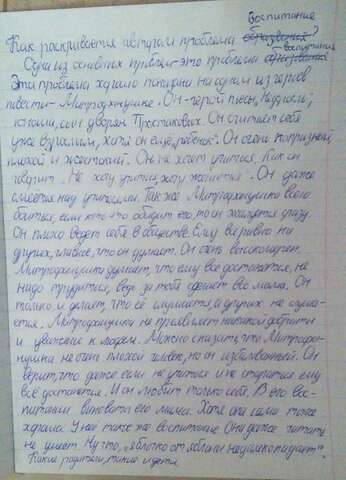 Воспитание
Как раскрывается автором проблема образования?
воспитания
Одна из основных проблем - это проблема образования
Эта проблема хорошо показана на одном из героев
повести - Митрофанушке. Он - герой пьесы, Недоросль,
сын дворян Простаковых. Он считает себя
уже взрослым, хотя он ещё ребёнок. Он очень капризный,
плохой и жестокий. Он не хочет учится. Как он
говорит „Не хочу учится, хочу женится". Он даже
смеется над учителями. Так же Митрофанушка всего
боится, если кто-то обидит его, то он жалуется сразу.
Он плохо ведет себя в обществе. Ему все равно на
других, главное, что он думает. Он очень высокомерен.
Митрофанушка думает, что ему всё достанется, не
надо трудится, ведь за того сделает все мама. Он
только и делает, что её слушается, а других не слуша-
ется. Митрофанушка не проявляет никакой доброты
и уважение к людям. Можно сказать, что Митрофа-
нушка не очень плохой человек, но он избалованный. Он
верит, что даже если не учится и не трудится ему
всё достанется. И он любит только себя. В его вос-
питании виновата его мама. Хотя она сама тоже
хороша. У неё такое же воспитание. Она даже читать
не умеет. Ну что, „яблоко от яблони недалеко падает".
Какие родители, такие и дети.